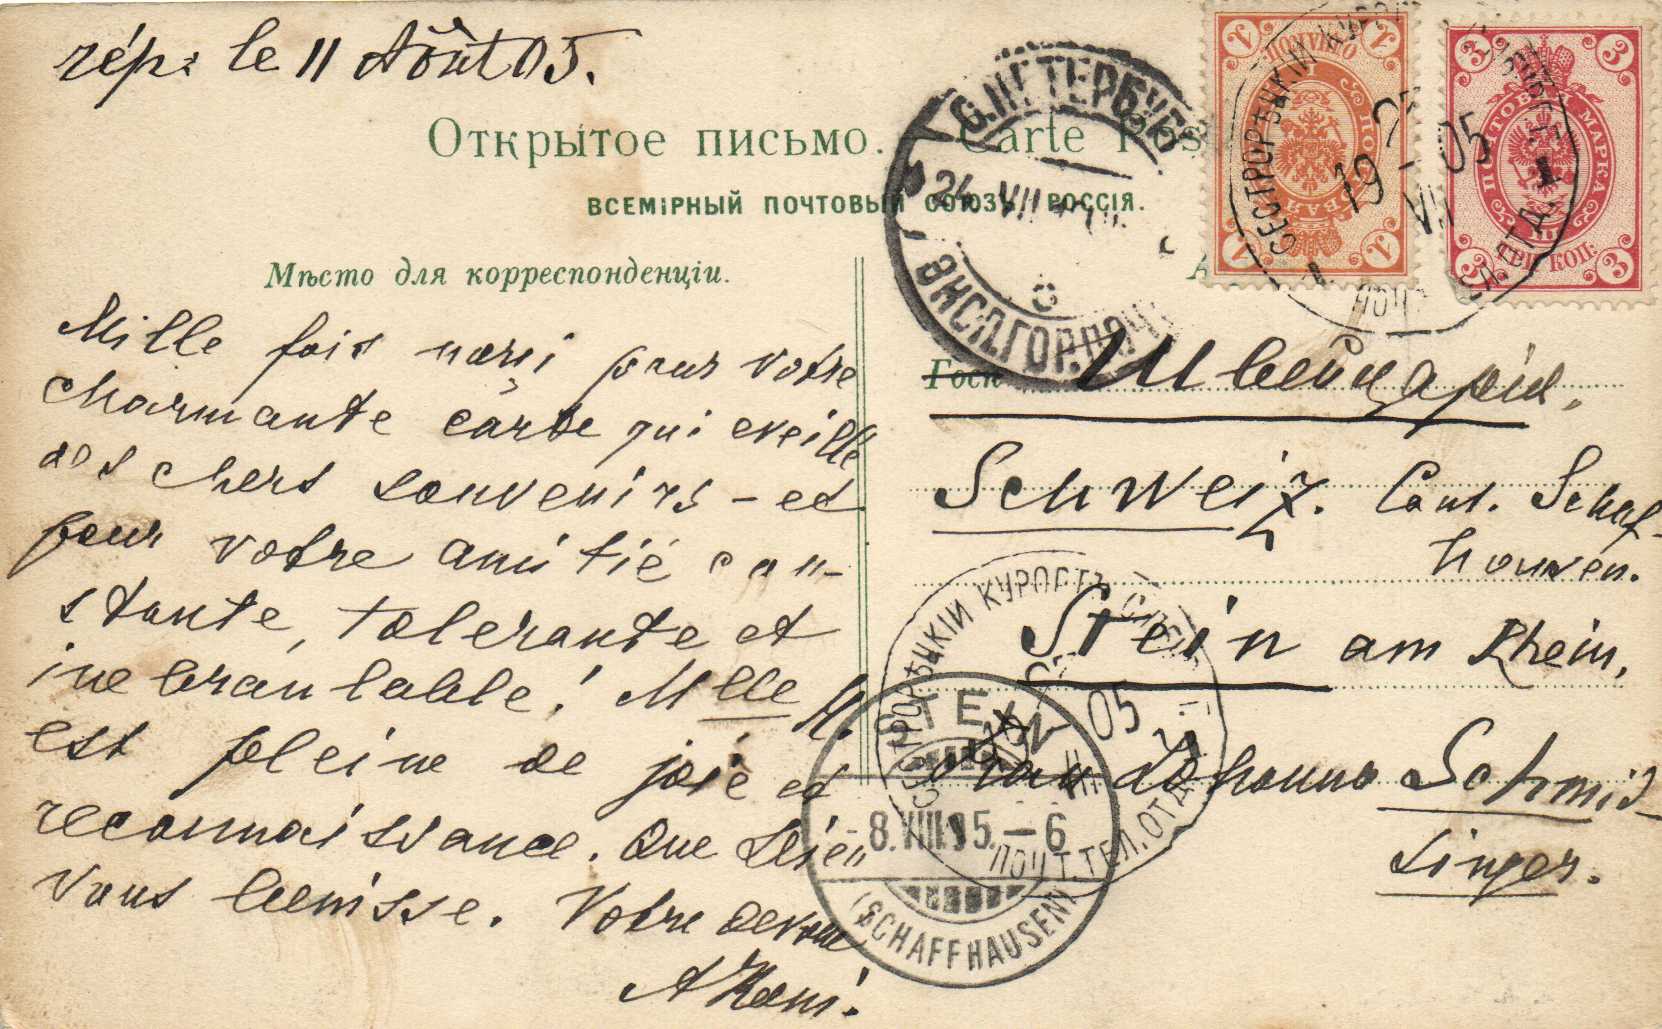 rép. le 11 Aôut 05.
Открытое письмо. Carte Pos
ВСЕМІРНЫЙ ПОЧТОВЫЙ СОЮЗЪ. РОССІЯ.
Мѣсто для корреспонденціи.
Mille fois merci pour votre
charmante carte qui eveille
des chers souvenirs – et
pour votre amitié con-
stante, tolerante et
inebranlable! Mlle M.
est pleine de joie et
reconnaissance. Que Dieu
vous benisse. Votre devoué
A Koni.
С.ПЕТЕРБУРГЪ
24 VII
1
1
1
1
3
3
3
3
ПОЧТОВАЯ МАРКА
ТРИ КОП.
СЕСТРОРѢЦКІЙ КУРОРТЪ
19 - 05
VII
Госп
Швейцарія.
Schweiz. Cant. Schaf-
hausen.
Stein am Rhein.
Frau Johanna Schmid-
singer.
СЕСТРОРѢЦКІЙ КУРОРТЪ
05
ПОЧТ. ТЕЛ. ОТД.
STEIN
8.VIII.05.–6
(SCHAFFHAUSEN)